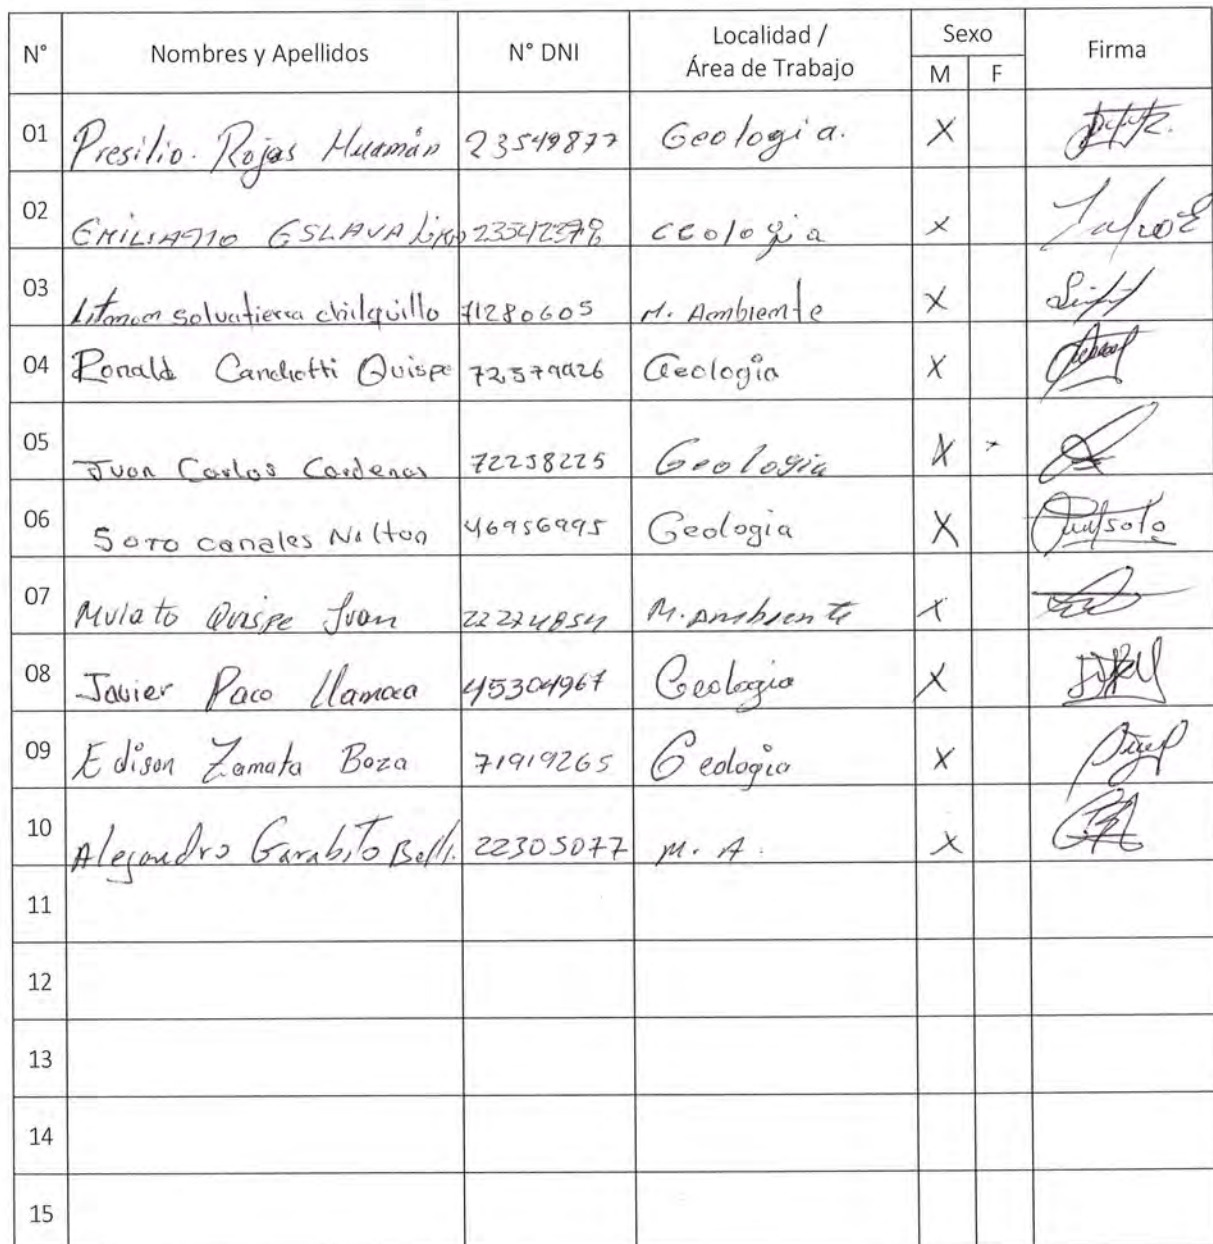 N° Nombres y Apellidos N° DNI Localidad / Área de Trabajo Sexo M F Firma
01 Presilio Rojas Huamán 23549877 Geologia. X
02 EMILIANO ESLAVA 23542278 ceologia x
03 solvatierra chilquillo 71280605 M. Ambiente X
04 Ronald Canchotti Quispe 72579926 Geologia X
05 Juan Carlos Cardenas 72258225 Geologia X
06 Soto canales Nilton 46956995 Geologia X
07 Mulato Quispe Juan 22274854 M. Ambiente X
08 Javier Paco llamoca 45304967 Geologia X
09 Edison Zamata Boza 71919265 Geologia X
10 Alejandro Garabito Belli. 22305077 M. A. X
11
12
13
14
15